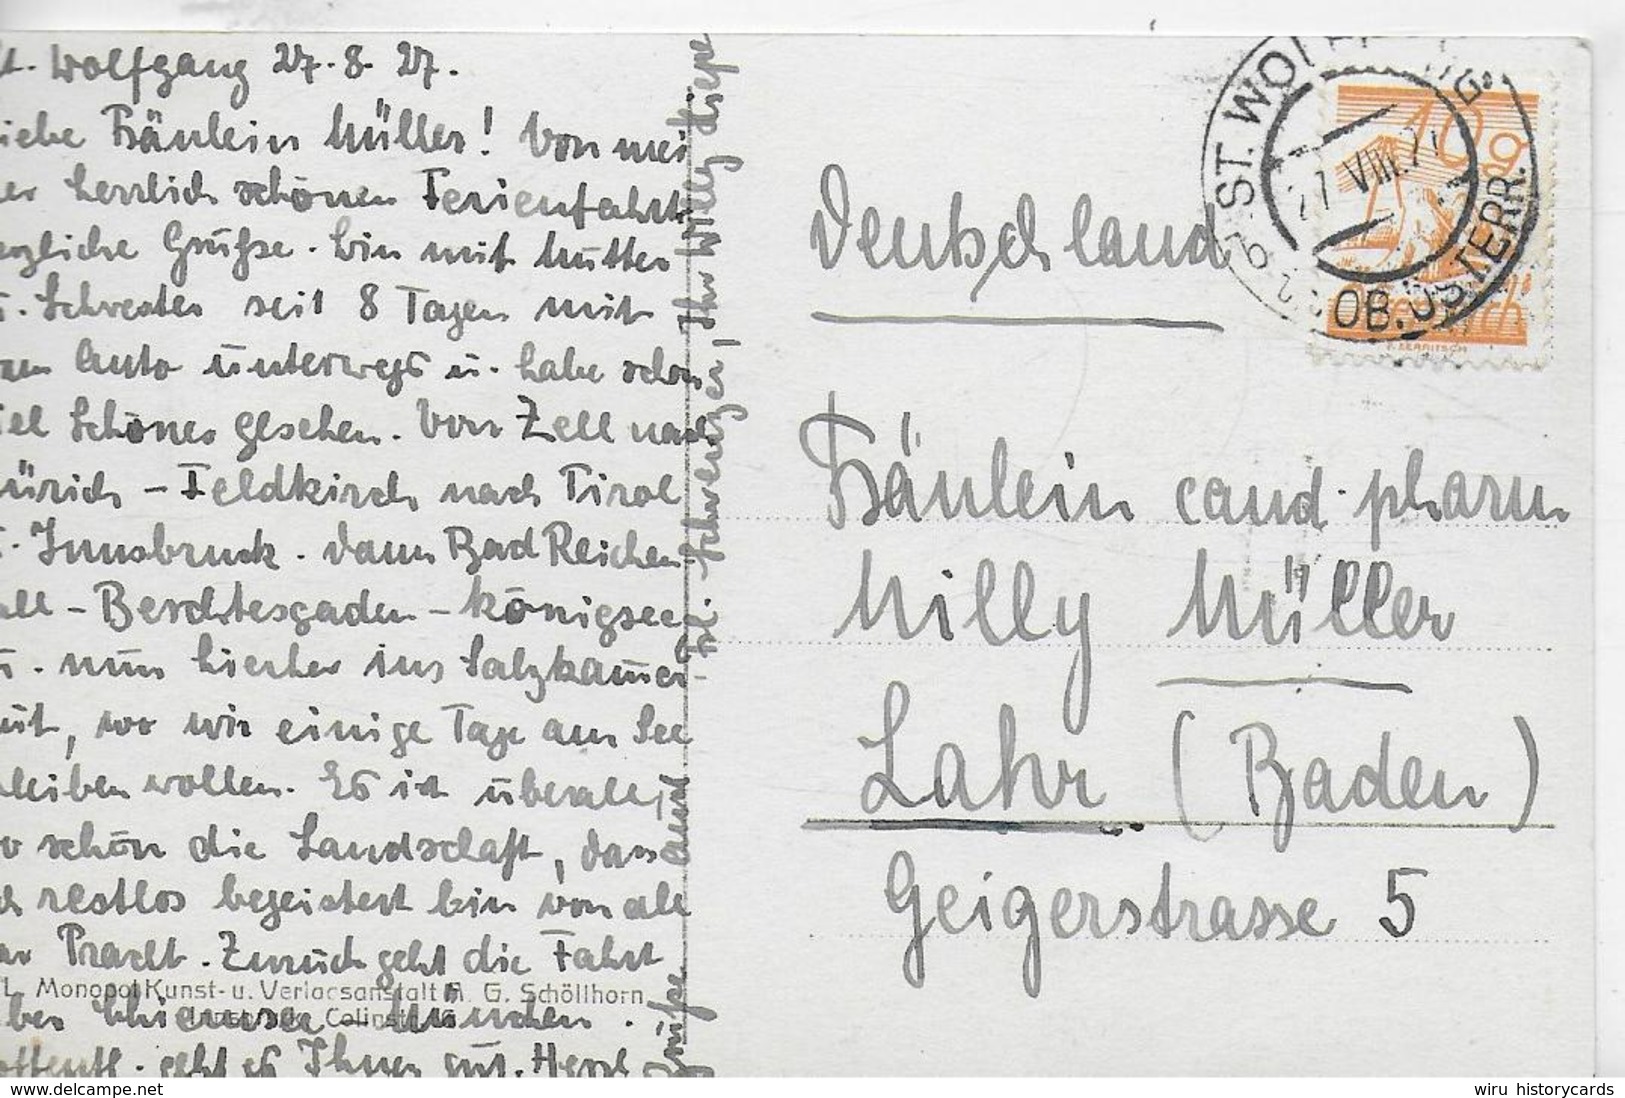 St. Wolfgang 27.8.27.
iebe Fräulein Müller! Von mei
er herrlich schönen Ferienfahrt
erzliche Grüsse. Bin mit Mutter
u. Schwester seit 8 Tagen mit
em Auto unterwegs u. habe schon
iel Schönes gesehen. Von Zell nach
ürich - Feldkirch nach Tirol
Innsbruck. Dann Bad Reichen
all - Berchtesgaden - Königsee
u. nun hierher ins Salzkammer-
ut, wo wir einige Tage am See
leiben wollen. Es ist überall
o schön die Landschaft, dass
ch restlos begeistert bin von all
er Pracht. Zurück geht die Fahrt
ber Chiemsee - München.
offentl. geht es Ihnen gut. Herzl
Grüsse
Ihr Willy
L. Monopol Kunst- u. Verlagsanstalt A. G. Schöllhorn
Innsbruck, Colingasse
Deutschland
Fräulein cand. pharm
Milly Müller
Lahr (Baden)
Geigerstrasse 5
ST. WOLFGANG
27 VIII. 27
OB. ÖSTERR.
10 g
Österreich
www.delcampe.net
wiru historycards